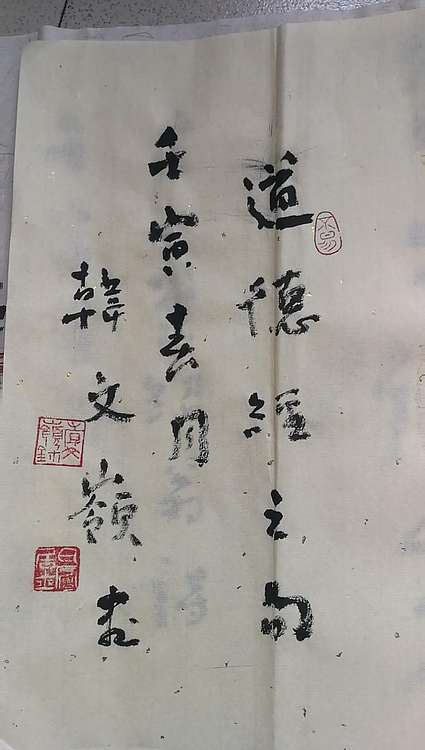 道德經之句
壬寅春月
韓文嶺書
不易